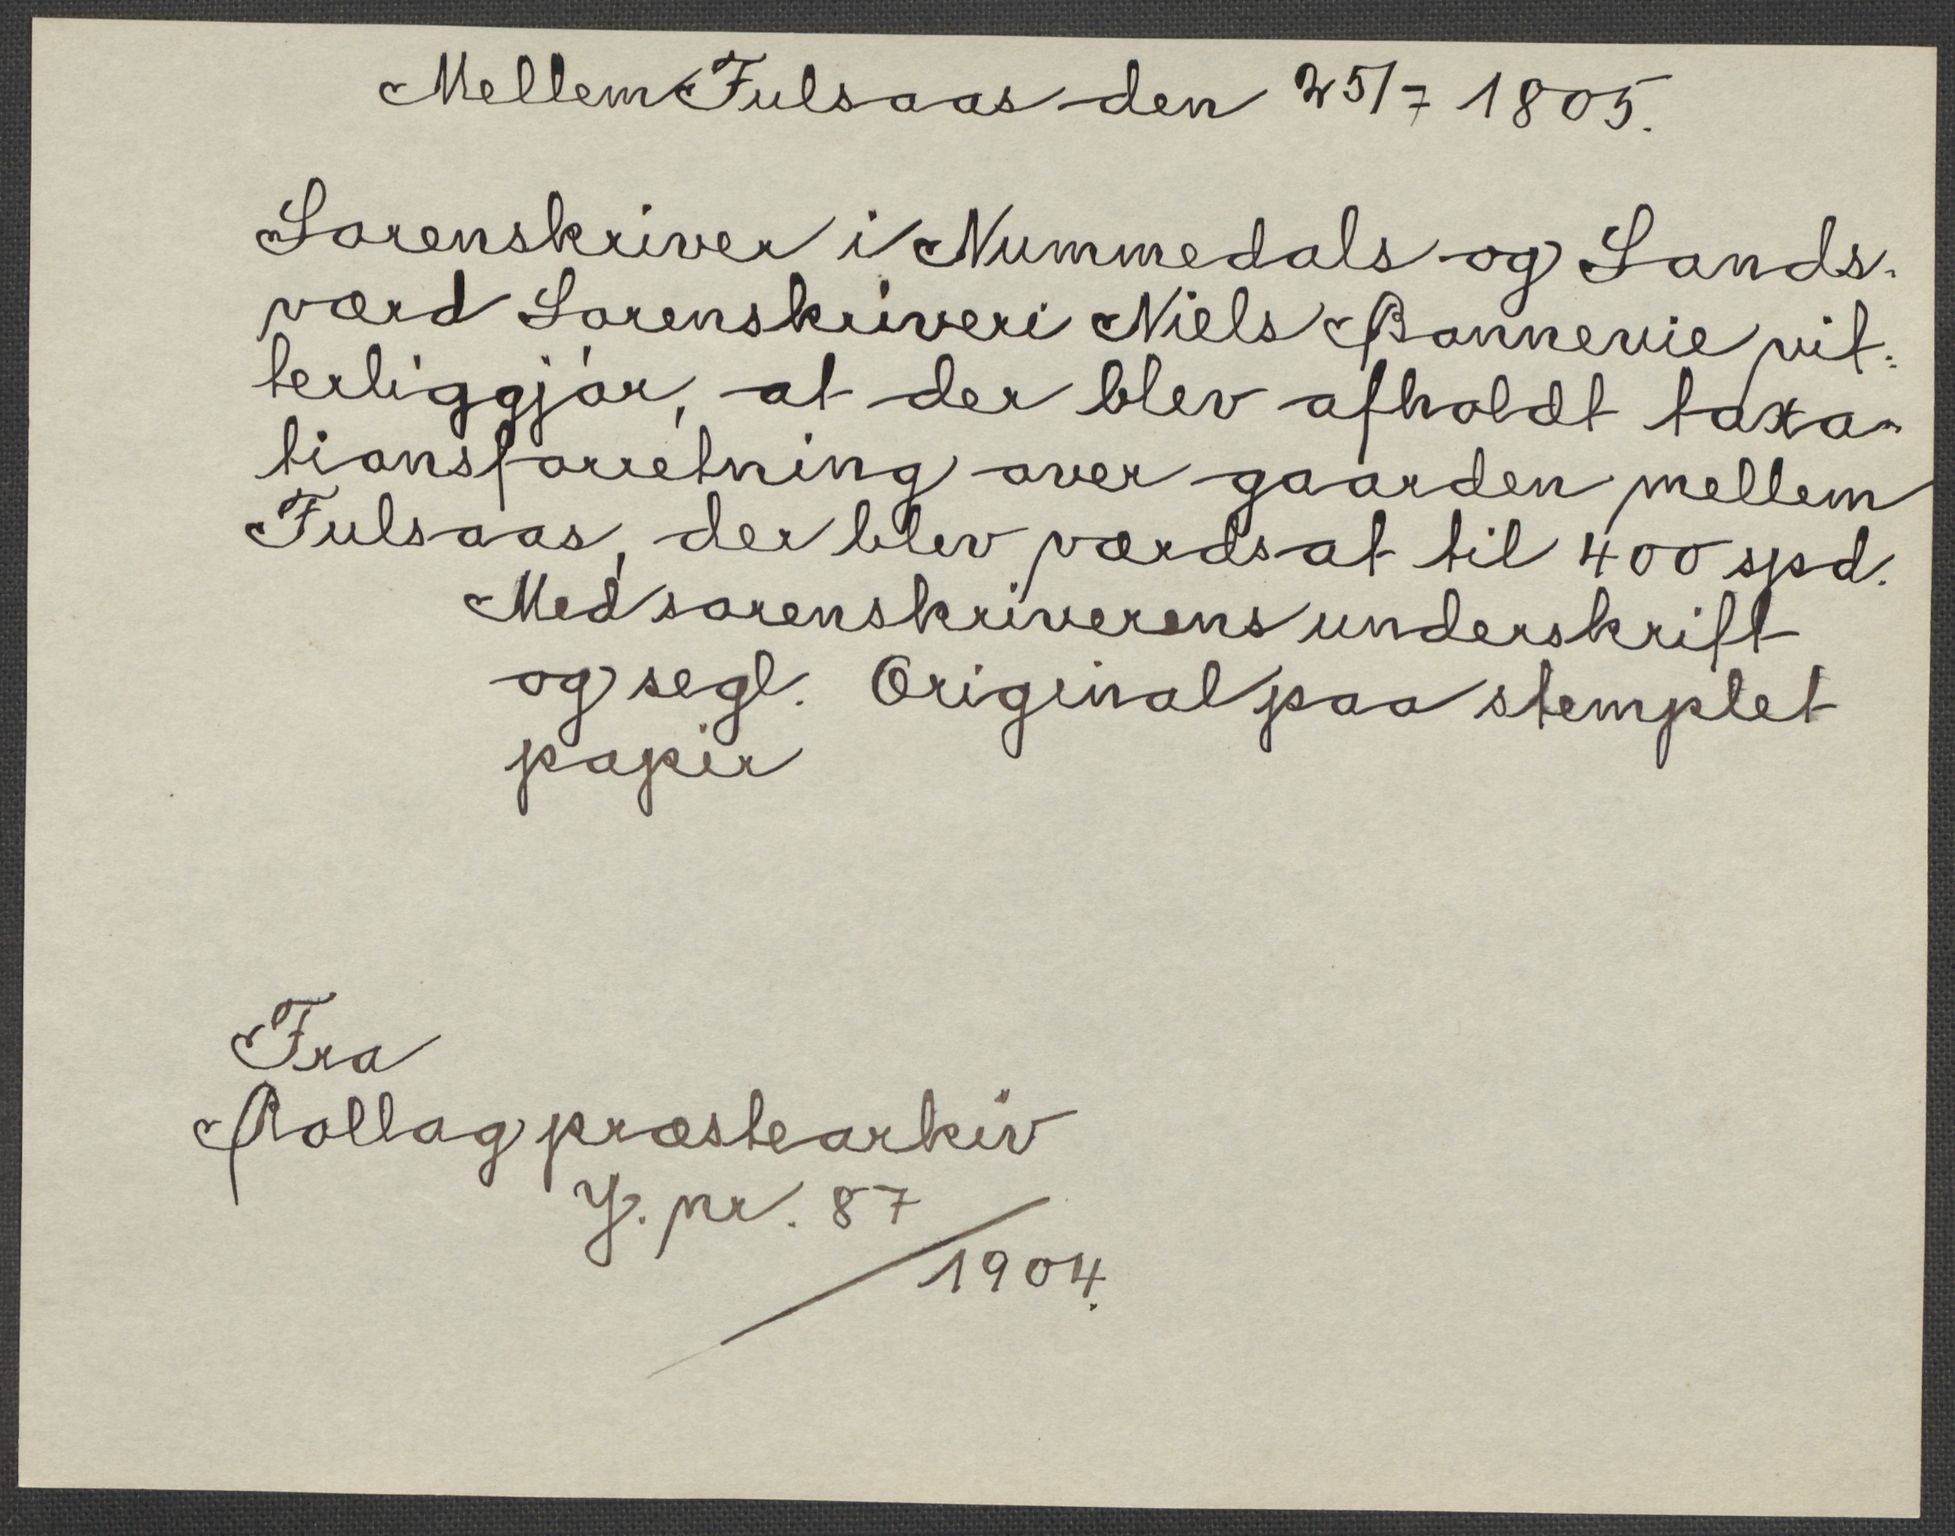 Mellem Fulsaas den 25/7 1805.
Sorenskriver i Nummedals og Sands-
værd Sorenskriveri Niels Bonnevie vit-
terliggjør, at der blev afholdt taxa-
tionsforretning over gaarden mellem
Fulsaas, der blev værdsat til 400 spd.
Med sorenskriverens underskrift
og segl. Original paa stemplet
papir
Fra
Rollag præstearkiv
J. nr. 87
1904.